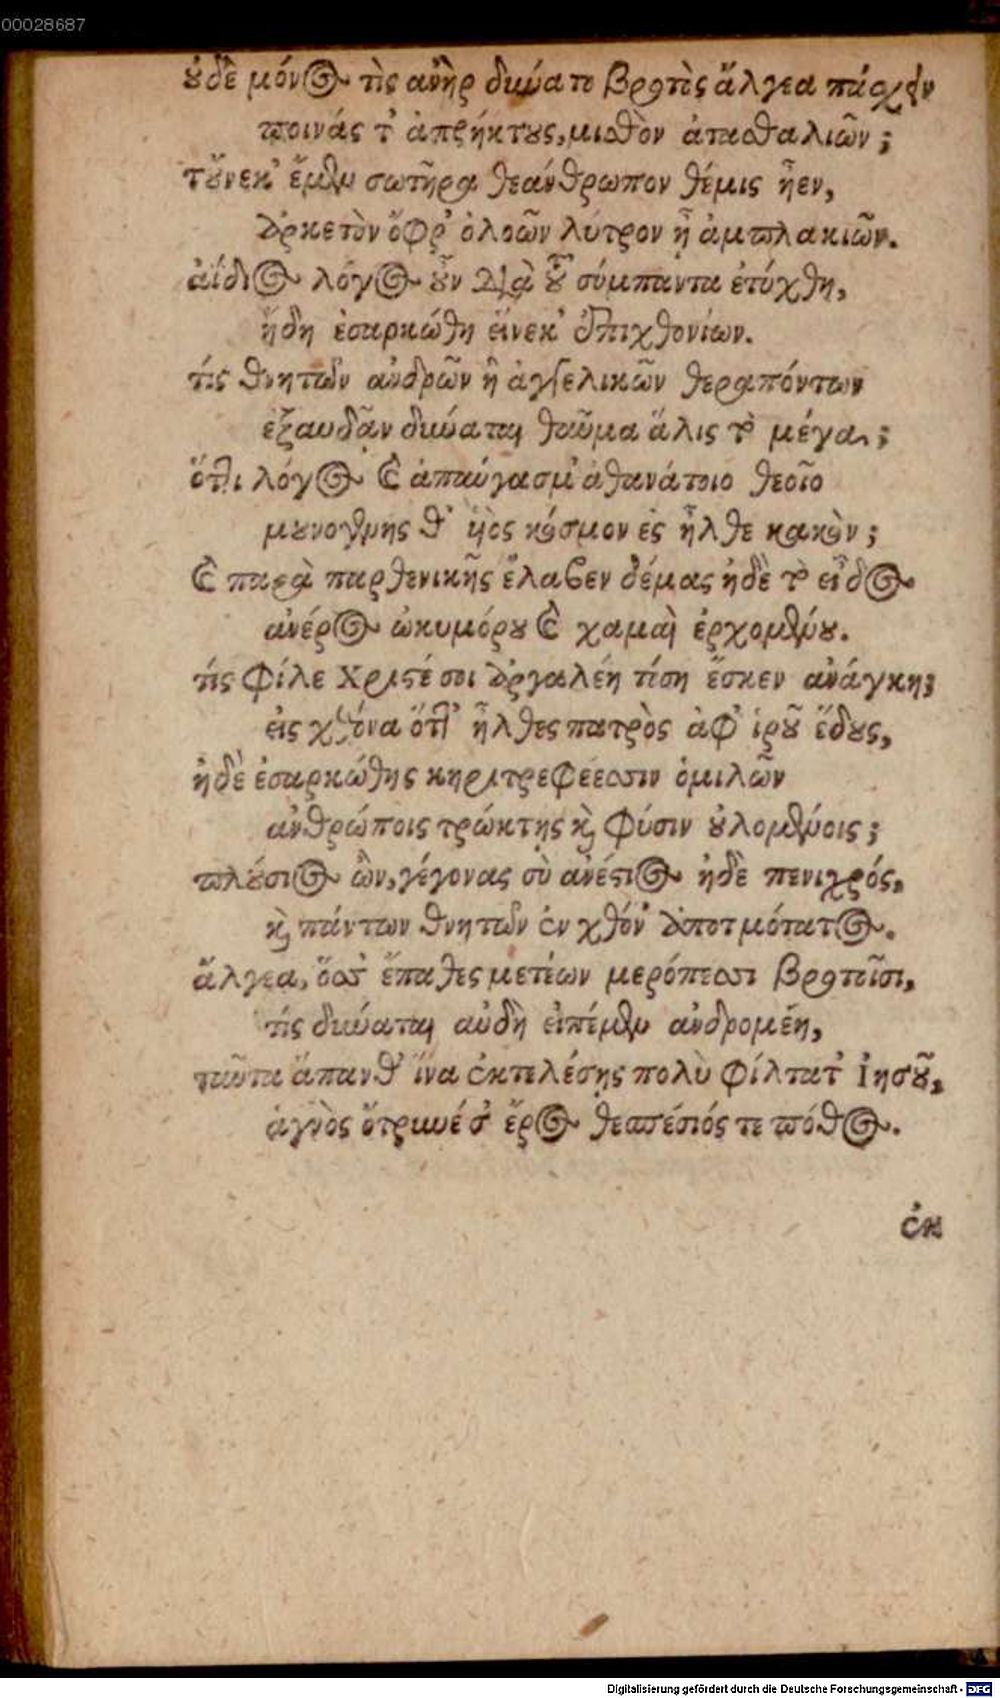 00028687
οὐδὲ μόνος τὶς ἀνὴρ δύνατο βροτὸς ἄλγεα πάσχειν
ποινάς τ' ἀπρήκτους, μισθὸν ἀτασθαλιῶν;
τοὔνεκ' ἔμεν σωτῆρα θεάνθρωπον θέμις ἦεν,
ἀρκετὸν ὄφρ' ὀλοῶν λύτρον ᾖ ἀμπλακιῶν.
ἀίδιος λόγος οὖν διὰ οὗ σύμπαντα ἐτύχθη,
ἤδη ἐσαρκώθη εἵνεκ' ἐπιχθονίων.
τίς θνητῶν ἀνδρῶν ἢ ἀγγελικῶν θεραπόντων
ἐξαυδᾶν δύναται θαῦμα ἅλις τὸ μέγα;
ὅτι λόγος καὶ ἀπαύγασμ' ἀθανάτοιο θεοῖο
μουνογενής θ' υἱὸς κόσμον ἐς ἦλθε κακὸν;
καὶ παρὰ παρθενικῆς ἔλαβεν δέμας ἠδὲ τὸ εἶδος
ἀνέρος ὠκυμόρου καὶ χαμαὶ ἐρχομένου.
τίς φίλε Χριστέ σοι ἀργαλέη τίση ἔσκεν ἀνάγκη;
εἰς χθόνα ὅτι' ἦλθες πατρὸς ἀφ' ἱροῦ ἕδους,
ἠδὲ ἐσαρκώθης κηριτρεφέεσσιν ὁμιλῶν
ἀνθρώποις τρώκτης καὶ φύσιν οὐλομένοις;
πλούσιος ὢν, γέγονας σὺ ἀνέστιος ἠδὲ πενιχρός,
καὶ πάντων θνητῶν ἐν χθόν' ἀποτμότατος.
ἄλγεα, ὅσσ' ἔπαθες μετέων μερόπεσσι βροτοῖσι,
τίς δύναται αὐδὴ εἰπέμεν ἀνδρομέη,
ταῦτα ἅπανθ' ἵνα ἐκτελέσῃς πολὺ φίλτατ' Ἰησοῦ,
ἁγνὸς ὄτρυνέ σ' ἔρος θεσπέσιός τε πόθος.
ἐκ
Digitalisierung gefördert durch die Deutsche Forschungsgemeinschaft - DFG